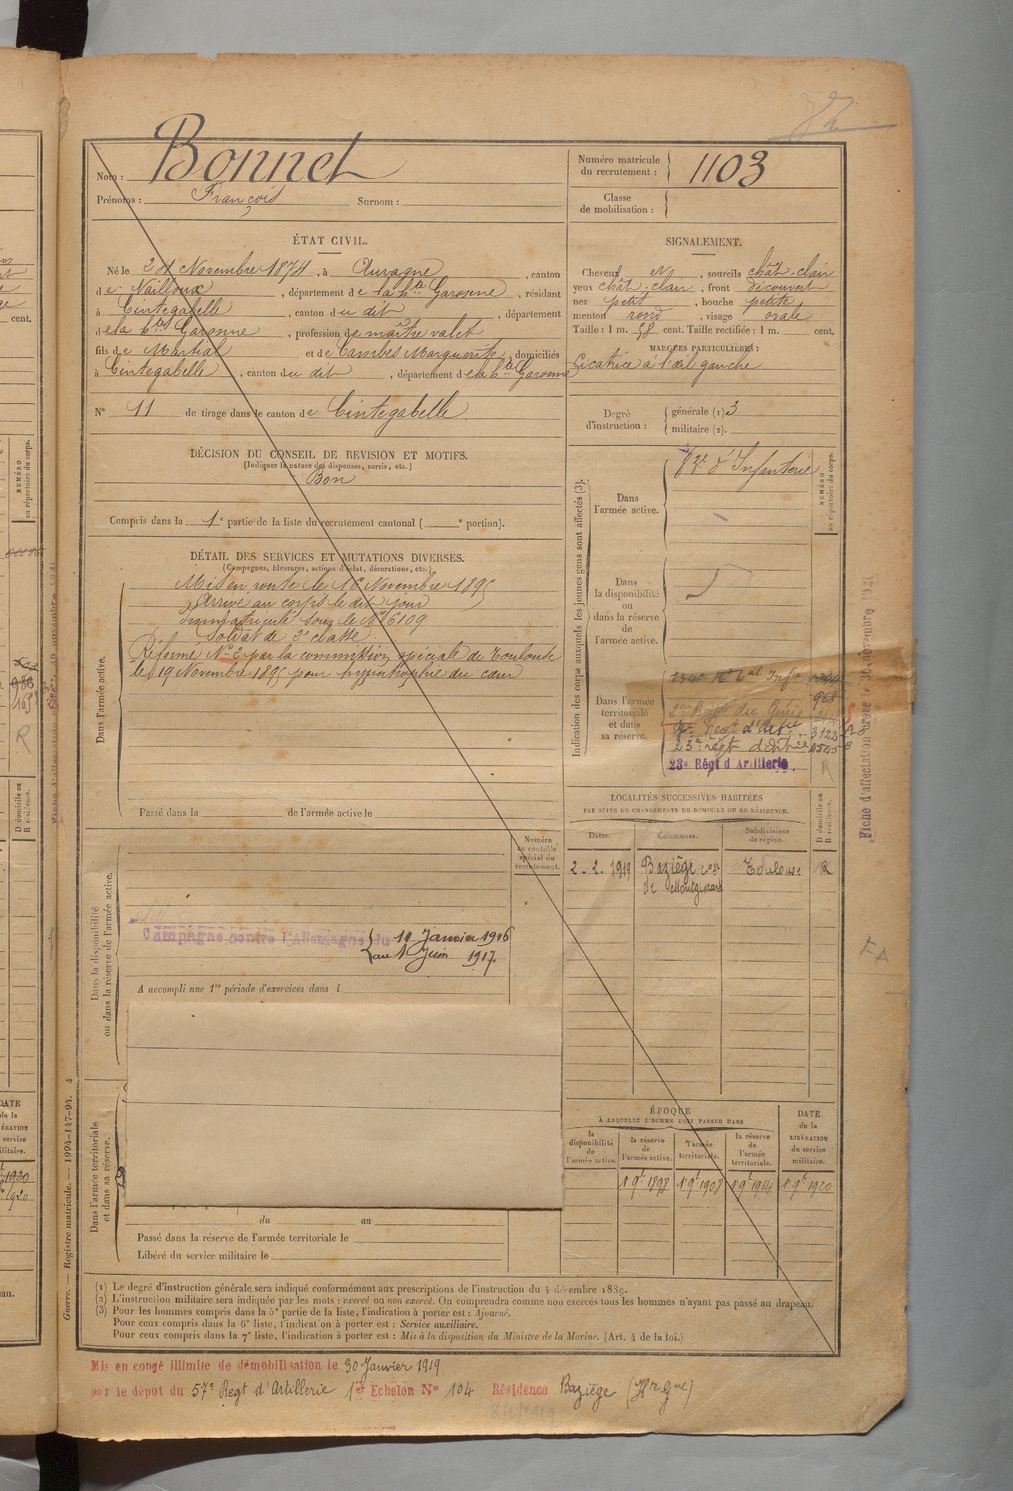 Bonnet
Nom :
Prénoms : François Surnom :
Numéro matricule
du recrutement :
1103
Classe
de mobilisation :
ÉTAT CIVIL.
Né le Novembre 1874, à Auragne, canton
de Nailloux, département de la hte Garonne, résidant
à Cintegabelle, canton du dit, département
de la hte Garonne, profession de maître valet
fils de Martial et de Cambes Marguerite, domiciliés
à Cintegabelle, canton du dit, département de la hte Garonne
N° 11 de tirage dans le canton de Cintegabelle
SIGNALEMENT.
Cheveux, sourcils chât. clair
yeux chât. clair, front découvert
nez petit, bouche petite
menton rond, visage ovale
Taille : 1 m. 58 cent. Taille rectifiée : 1 m. cent.
MARQUES PARTICULIÈRES :
Cicatrice à l'œil gauche
Degré
d'instruction :
générale (1) 3
militaire (2).
DÉCISION DU CONSEIL DE REVISION ET MOTIFS.
(Indiquer la nature des dispenses, sursis, etc.)
Bon
Compris dans la 1e partie de la liste du recrutement cantonal ( e portion).
DÉTAIL DES SERVICES ET MUTATIONS DIVERSES.
(Campagnes, blessures, actions d'éclat, décorations, etc.)
Dans l'armée active.
Mis en route le 16 Novembre 1895
Arrivé au corps le dit jour
Immatriculé sous le N° 6109
Soldat de 2e classe
Réformé N° 2 par la commission spéciale de Toulouse
le 19 Novembre 1895 pour hypertrophie du cœur
Passé dans la de l'armée active le
Numéro
au contrôle
spécial du
recrutement.
Dans la disponibilité
ou dans la réserve de l'armée active.
Campagne contre l'Allemagne du 11 Janvier 1916
au 1 Juin 1917.
A accompli une 1re période d'exercices dans l
Dans l'armée territoriale
et dans sa réserve.
du au
Passé dans la réserve de l'armée territoriale le
Libéré du service militaire le
Indication des corps auxquels les jeunes gens sont affectés (3).
NUMÉRO
au répertoire du corps.
Dans
l'armée active.
d'Infanterie
Dans
la disponibilité
ou
dans la réserve
de
l'armée active.
Dans l'armée
territoriale
et dans
sa réserve.
134e Rt tal Infie
968
Regt d'Art
3122
23e régt d'Artie
23e Régt d'Artillerie
R
Fiche d'affectation
LOCALITÉS SUCCESSIVES HABITÉES
PAR SUITE DE CHANGEMENTS DE DOMICILE OU DE RÉSIDENCE.
Dates. Communes. Subdivisions
de région.
D domicile ou
R résidence.
2.2.1919 Baziège Toulouse R
ÉPOQUE
À LAQUELLE L'HOMME DOIT PASSER DANS
DATE
de la
LIBÉRATION
du service
militaire.
la
disponibilité
de
l'armée active.
la réserve
de
l'armée active.
l'armée
territoriale.
la réserve
de
l'armée
territoriale.
1 9t 1898 1 9t 1908 1 9t 1914 1 9t 1920
(1) Le degré d'instruction générale sera indiqué conformément aux prescriptions de l'instruction du 4 décembre 1889.
(2) L'instruction militaire sera indiquée par les mots : exercé ou non exercé. On comprendra comme non exercés tous les hommes n'ayant pas passé au drapeau.
(3) Pour les hommes compris dans la 5e partie de la liste, l'indication à porter est : Ajourné.
Pour ceux compris dans la 6e liste, l'indication à porter est : Service auxiliaire.
Pour ceux compris dans la 7e liste, l'indication à porter est : Mis à la disposition du Ministre de la Marine. (Art. 4 de la loi.)
Guerre. — Registre matricule. — 1994-147-94. 4
Mis en congé illimité de démobilisation le 30 Janvier 1919
par le dépôt du 57e Regt d'Artillerie 1er Echelon N° 104 Résidence Baziège (Hte Gne)